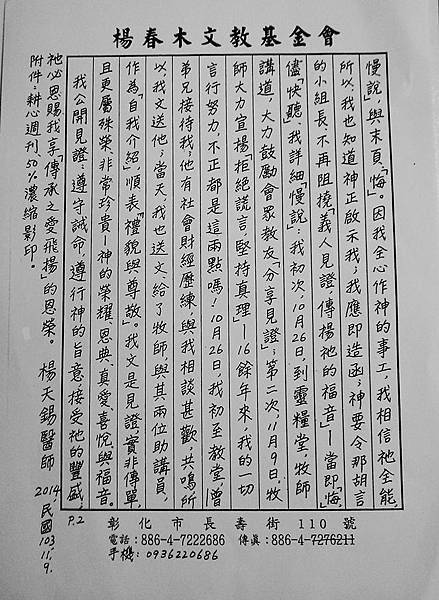 楊春木文教基金會
慢說」與末頁「悔」。因我全心作神的事工,我相信祂全能,
所以,我也知道神正啟示我;我應即造函;神要令那胡言
的小組長,不再阻撓「義人見證,傳揚祂的福音」—當即「悔」,
儘「快聽」,我詳細「慢說」:我初次,10月26日,到靈糧堂,牧師
講道,大力鼓勵會眾教友,分享見證;第二次,11月9日,牧
師大力宣揚「拒絕謊言,堅持真理」—16餘年來,我的一切
言行努力,不正都是這兩點嗎!10月26日,我初至教堂,曾
弟兄接待我,他有社會財經歷練,與我相談甚歡,共鳴所
以,我文送他;當天,我也送文給了牧師與其兩位助講員,
作為「自我介紹」,順表「禮貌與尊敬」。我文是見證,實非傳單,
且更屬殊榮,非常珍貴—神的榮耀、恩典、真愛、喜悅與福音。
我公開見證,遵守誡命,遵行神的旨意,接受祂的豐盛;
祂必恩賜我,享「傳承之愛飛揚」的恩榮。 楊天錫醫師 2014 民國103.11.9.
附件:耕心週刊50%濃縮影印。
P.2
彰化市長壽街110號
電話:886-4-7222686 傳真:886-4-7276211
手機:0936220686